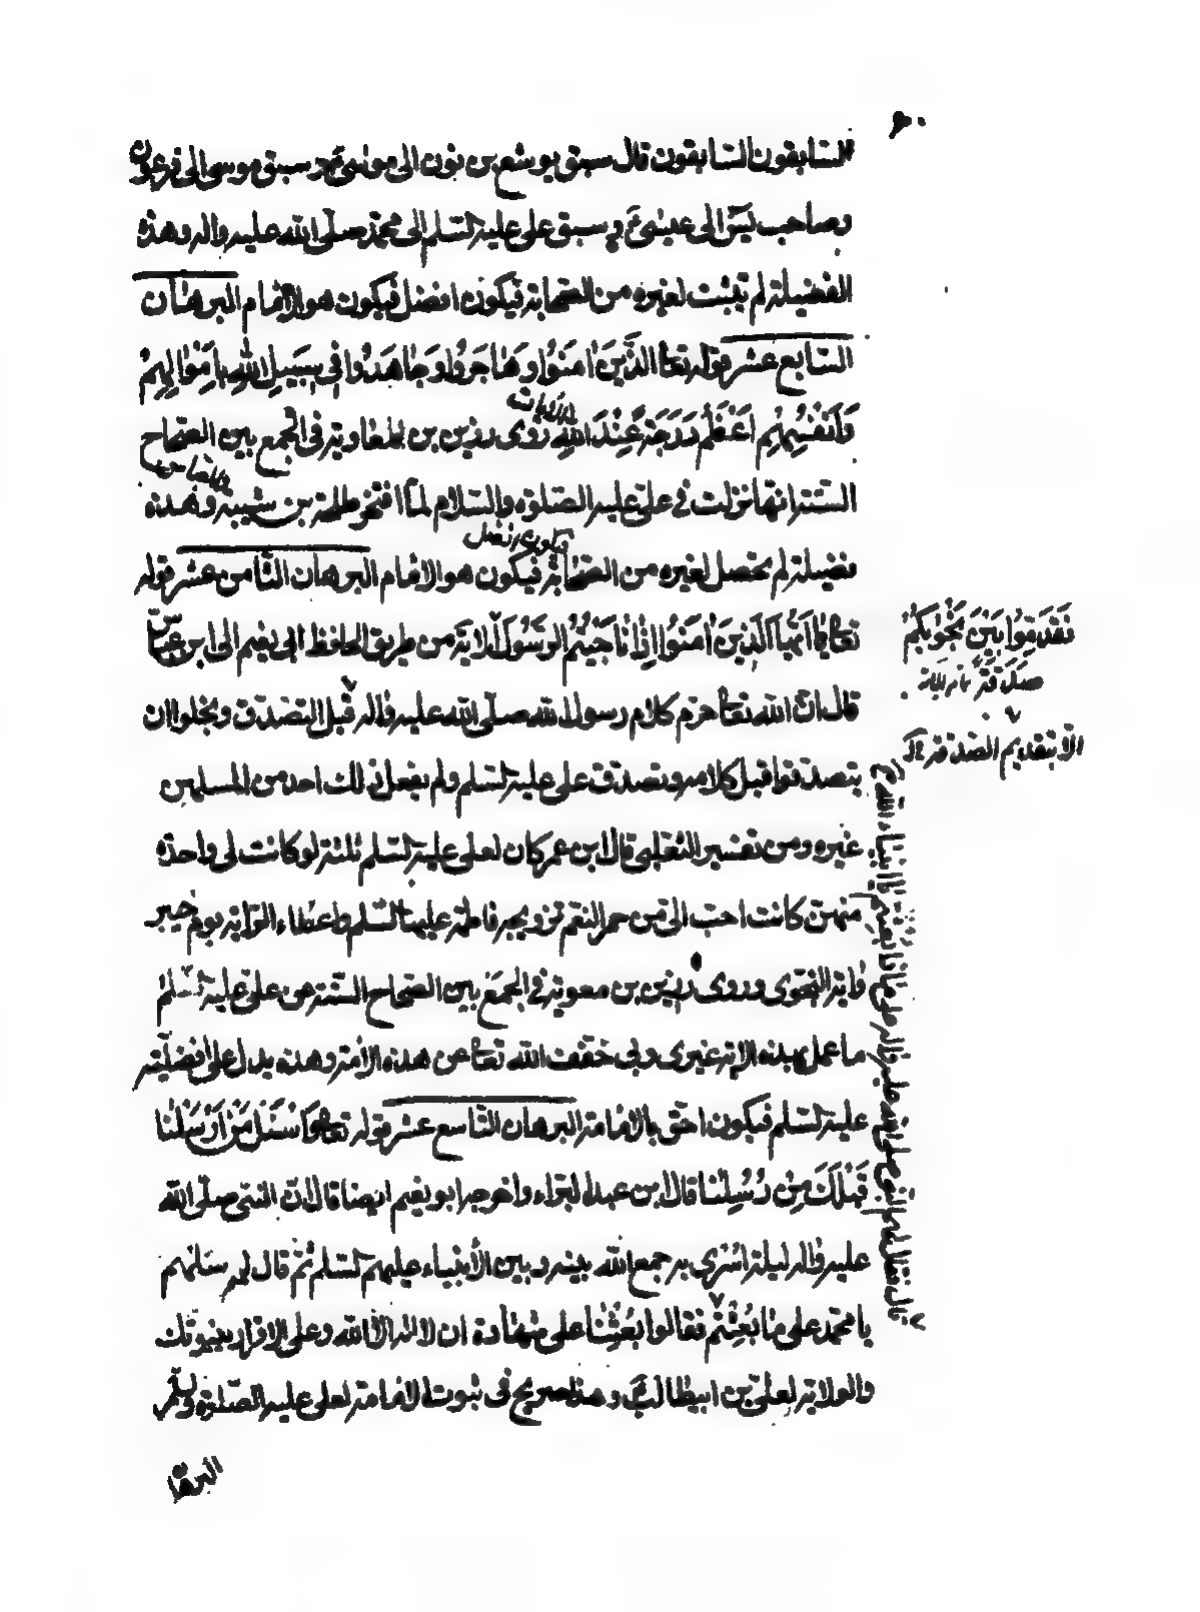 السابقون السابقون قال سبق يوشع بن نون الى موسى وسبق موسى الى فرعون
وصاحب يس الى عيسى ع وسبق على عليه السلم الى محمد صلى الله عليه واله وهذه
الفضيلة لم تثبت لغيره من الصحابة فيكون افضل فيكون هو الامام البرهان
السابع عشر قوله تعا الَّذِينَ اٰمَنُوا وَهَاجَرُوا وَجَاهَدُوا فِي سَبِيلِ اللهِ بِاَمْوٰالِهِمْ
وَاَنْفُسِهِمْ اَعْظَمُ دَرَجَةً عِنْدَ اللهِ الايات روى رزين بن معاوية فى الجمع بين الصحاح
الستة انها نزلت فى على عليه الصلوة والسلام لما افتخر طلحة بن شيبة والعباس وهذه
فضيلة لم يحصل لغيره من الصحابة فيكون افضل فيكون هو الامام البرهان الثامن عشر قوله
تعا يٰا اَيُّهَا الَّذِينَ اٰمَنُوا اِذٰا نٰاجَيْتُمُ الرَّسُولَ الاية من طريق الحافظ ابى نعيم الى ابن عباس
فَقَدِّمُوا بَيْنَ يَدَيْ نَجْوٰيكُمْ
صَدَقَةً
قال ان الله تعا حرم كلام رسول الله صلى الله عليه واله قبل التصدق وبخلوا ان
الا بتقديم الصدقة
يتصدقوا قبل كلامه وتصدق على عليه السلم ولم يفعل ذلك احد من المسلمين
غيره ومن تفسير الثعلبى قال ابن عمر كان لعلى عليه السلم ثلثة لو كانت لى واحدة
منهن كانت احب الى من حمر النعم تزويجه فاطمة عليها السلم واعطاء الراية يوم خيبر
واية النجوى وروى رزين بن معوية فى الجمع بين الصحاح الستة عن على عليه السلم
ما عمل بهذه الاية غيرى وبى خفف الله تعا عن هذه الامة وهذه يدل على افضليته
عليه السلم فيكون احق بالامامة البرهان التاسع عشر قوله تعا وَاسْئَلْ مَنْ اَرْسَلْنٰا
قَبْلَكَ مِنْ رُسُلِنٰا قال ابن عبد البر واخرجه ابو نعيم ايضا قال ان النبى صلى الله
عليه واله ليلة اسرى به جمع الله بينه وبين الأنبياء عليهم السلم ثم قال له سلهم
يا محمد على مٰا بُعِثْتُمْ فقالوا بُعِثْنٰا على شهادة ان لا اله الا الله وعلى الاقرار بنبوتك
والولاية لعلى بن ابيطالب وهذا صريح فى ثبوت الامامة لعلى عليه الصلوة والسلم
البرهان